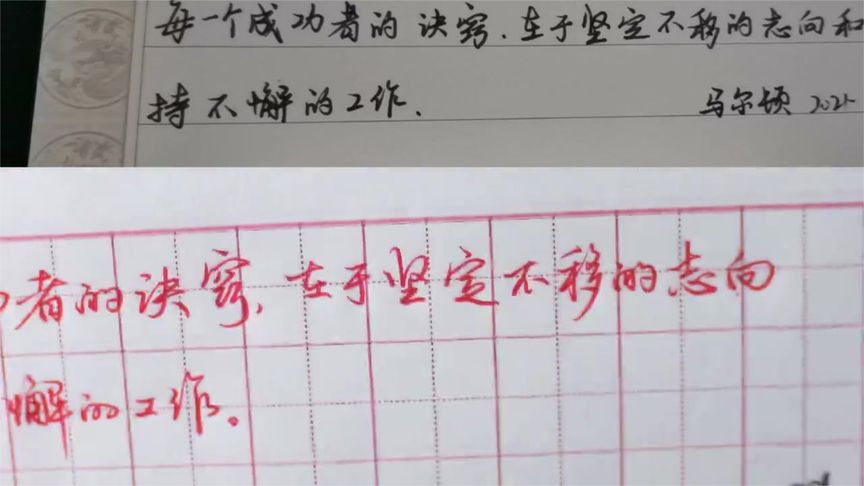 每一个成功者的诀窍.在于坚定不移的志向和
持不懈的工作.
马尔顿
者的诀窍,在于坚定不移的志向
懈的工作。